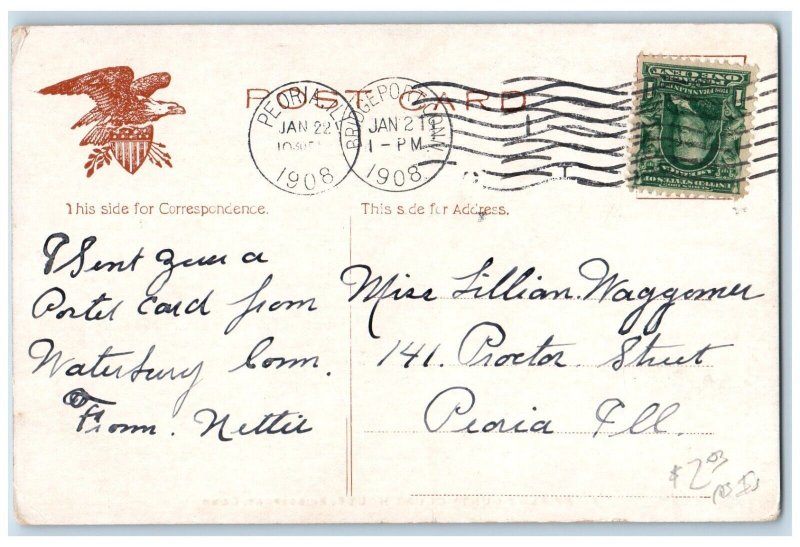 POST CARD
PEORIA, ILL.
JAN 22
1908
BRIDGEPORT, CONN.
JAN 21
1-PM
1908
ONE CENT
This side for Correspondence.
This side for Address.
I Sent you a
Postel Card from
Waterbury Conn.
From. Nettie
Miss Lillian. Waggomer
141. Proctor Street
Peoria Ill.
$2.03